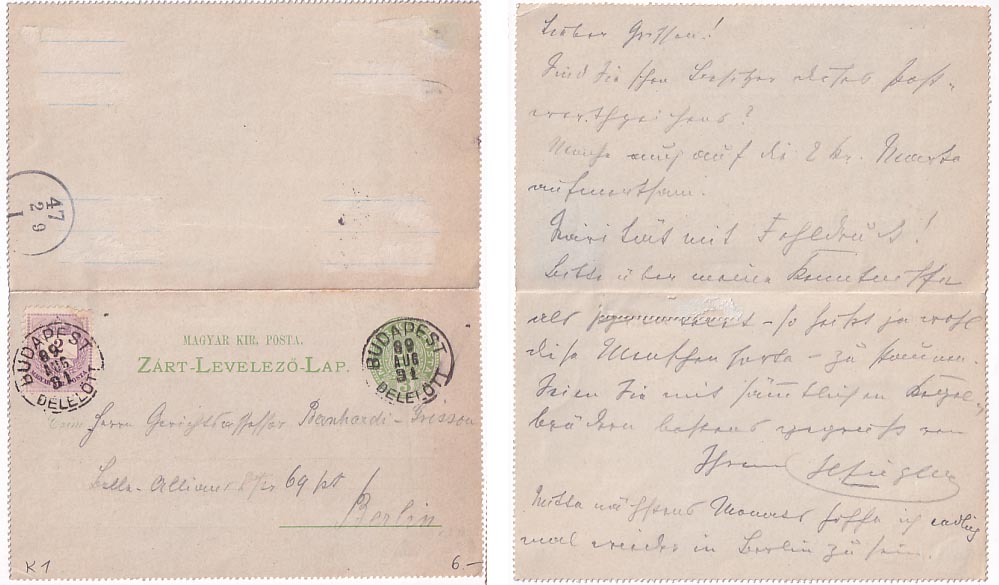 47
29
1
MAGYAR KIR. POSTA.
ZÁRT-LEVELEZŐ-LAP.
BUDAPEST
89
AUG
31
DÉLELŐTT
BUDAPEST
89
AUG
31
DÉLELŐTT
Herrn Gerichtsassessor Bernhardi-Grisson
Belle-Alliance Str 69 pt
Berlin
K1
6.-
Lieber Grisson!
Sind Sie schon Besitzer dieses Post-
werthzeichens?
Mache auf die 2 kr. Marke
aufmerksam.
Rarität mit Fehldruck!
Bitte über meine Kenntnisse
als - so heißt ja wohl
diese Menschensorte - zu staunen.
Seien Sie mit sämtlichen Kegel-
brüdern bestens gegrüßt von
Ihrem
Mitte nächsten Monats hoffe ich endlich
mal wieder in Berlin zu sein.